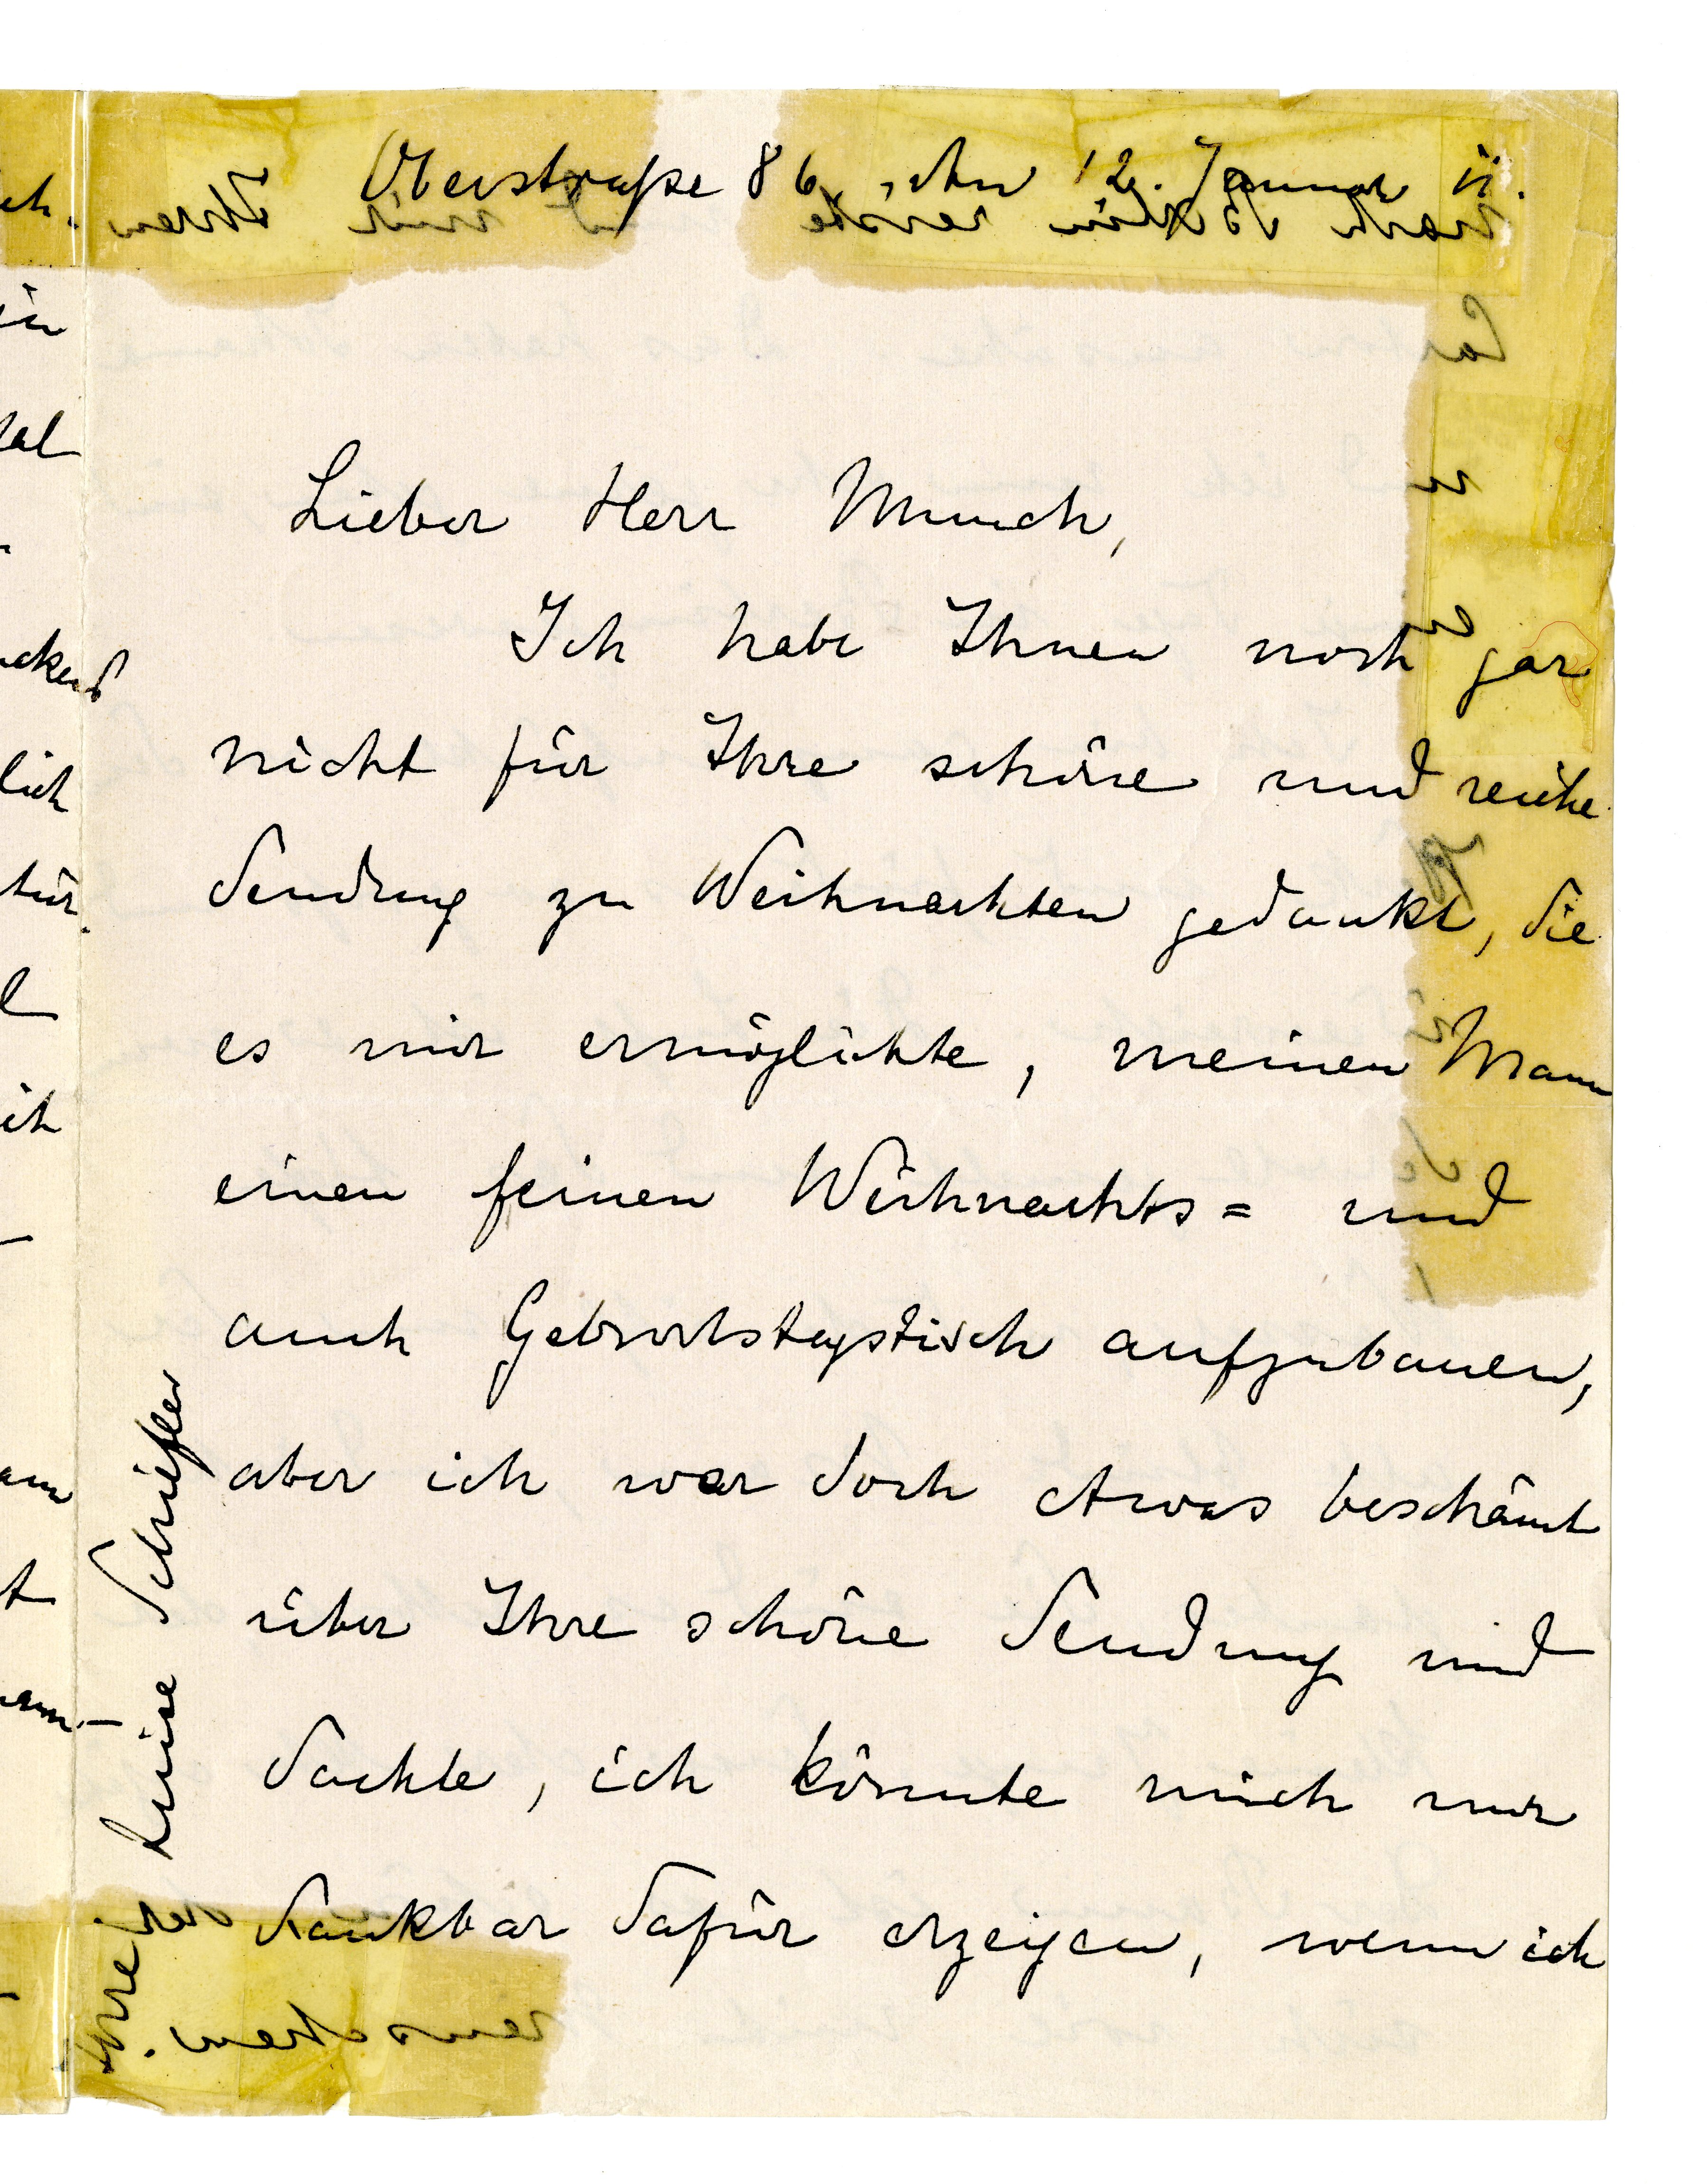 Oberstraße 86, den 12. Januar 11.
Lieber Herr Munch,
Ich habe Ihnen noch gar
nicht für Ihre schöne und reiche
Sendung zu Weihnachten gedankt, die
es mir ermöglichte, meinen Mann
einen feinen Weihnachts= und
auch Geburtstagstisch aufzubauen,
aber ich war doch etwas beschämt
über Ihre schöne Sendung und
dachte, ich könnte mich nur
dankbar dafür erzeigen, wenn ich
Ihre Luise Schiefler